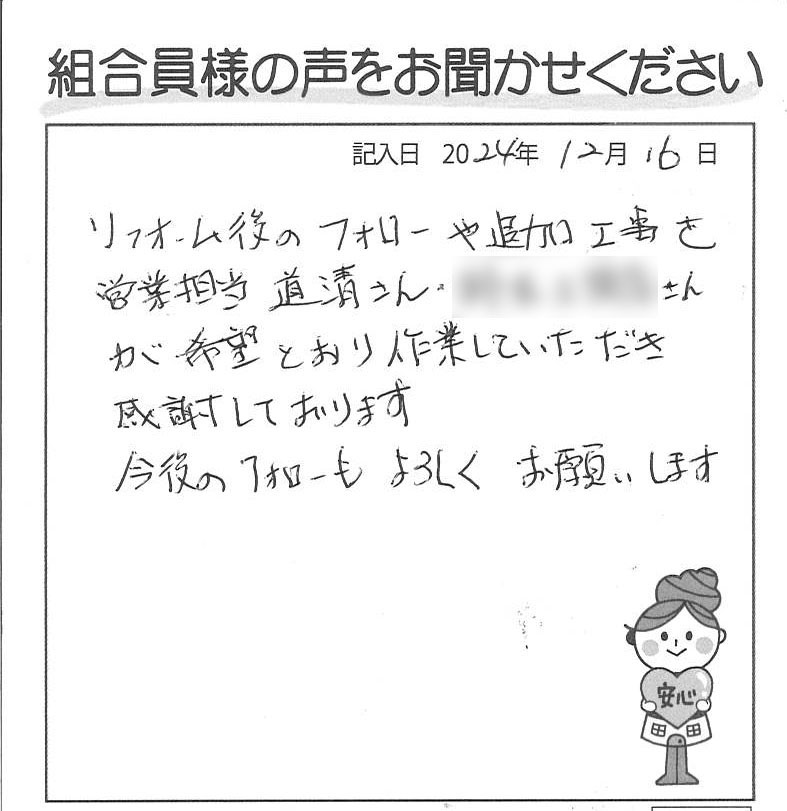 組合員様の声をお聞かせください
記入日 2024年 12月 16日
リフォーム後のフォローや追加工事を
営業担当 道清さん・ さん
がご希望とおり作業していただき
感謝しております
今後のフォローもよろしくお願いします
安心